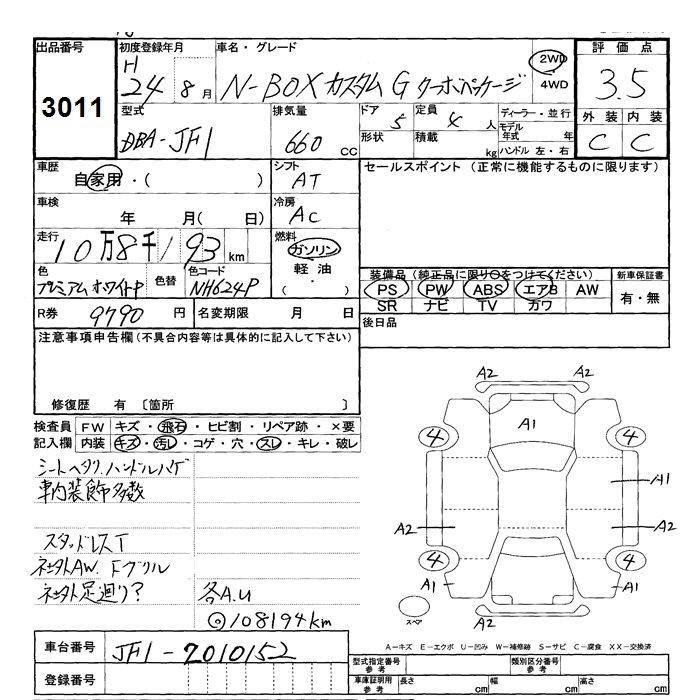 出品番号 初度登録年月 車名・グレード 評価点
3011 H 24 8月 N-BOXカスタムG ターボパッケージ 2WD 4WD 3.5
型式 排気量 ドア 定員 ディーラー・並行 外装 内装
DBA-JF1 660 CC 5 4人 モデル年式 年 C C
形状 積載 kg ハンドル 左・右
車歴 シフト セールスポイント (正常に機能するものに限ります)
自家用・( ) AT
車検 冷房
年 月( 日) AC
走行 燃料
10万8千193km ガソリン
軽油
( ・ )
色 色替 色コード 装備品 (純正品に限り○をつけてください) 新車保証書
プレミアムホワイトP NH624P PS PW ABS エアB AW 有・無
SR ナビ TV カワ
R券 9790円 名変期限 月 日 後日品
注意事項申告欄(不具合内容等は具体的に記入して下さい)
修復歴 有 〔箇所 〕
検査員 FW キズ・飛石・ヒビ割・リペア跡・×要
記入欄 内装 キズ・汚レ・コゲ・穴・スレ・キレ・破レ
シートヘタリ.ハンドルハゲ
車内装飾多数
スタッドレスT
社外AW. Fグリル
社外足廻り? 各A.U
◎108194km
A2 A2
A1
4 4
A1
A2 A2
4 4
A1 A1
スペア A2
A-キズ E-エクボ U-凹み W-補修跡 S-サビ C-腐食 XX-交換済
車台番号 JF1-2010152 型式指定番号 参考 類別区分番号 参考
登録番号 車庫証明用 参考 長さ cm 幅 cm 高さ cm